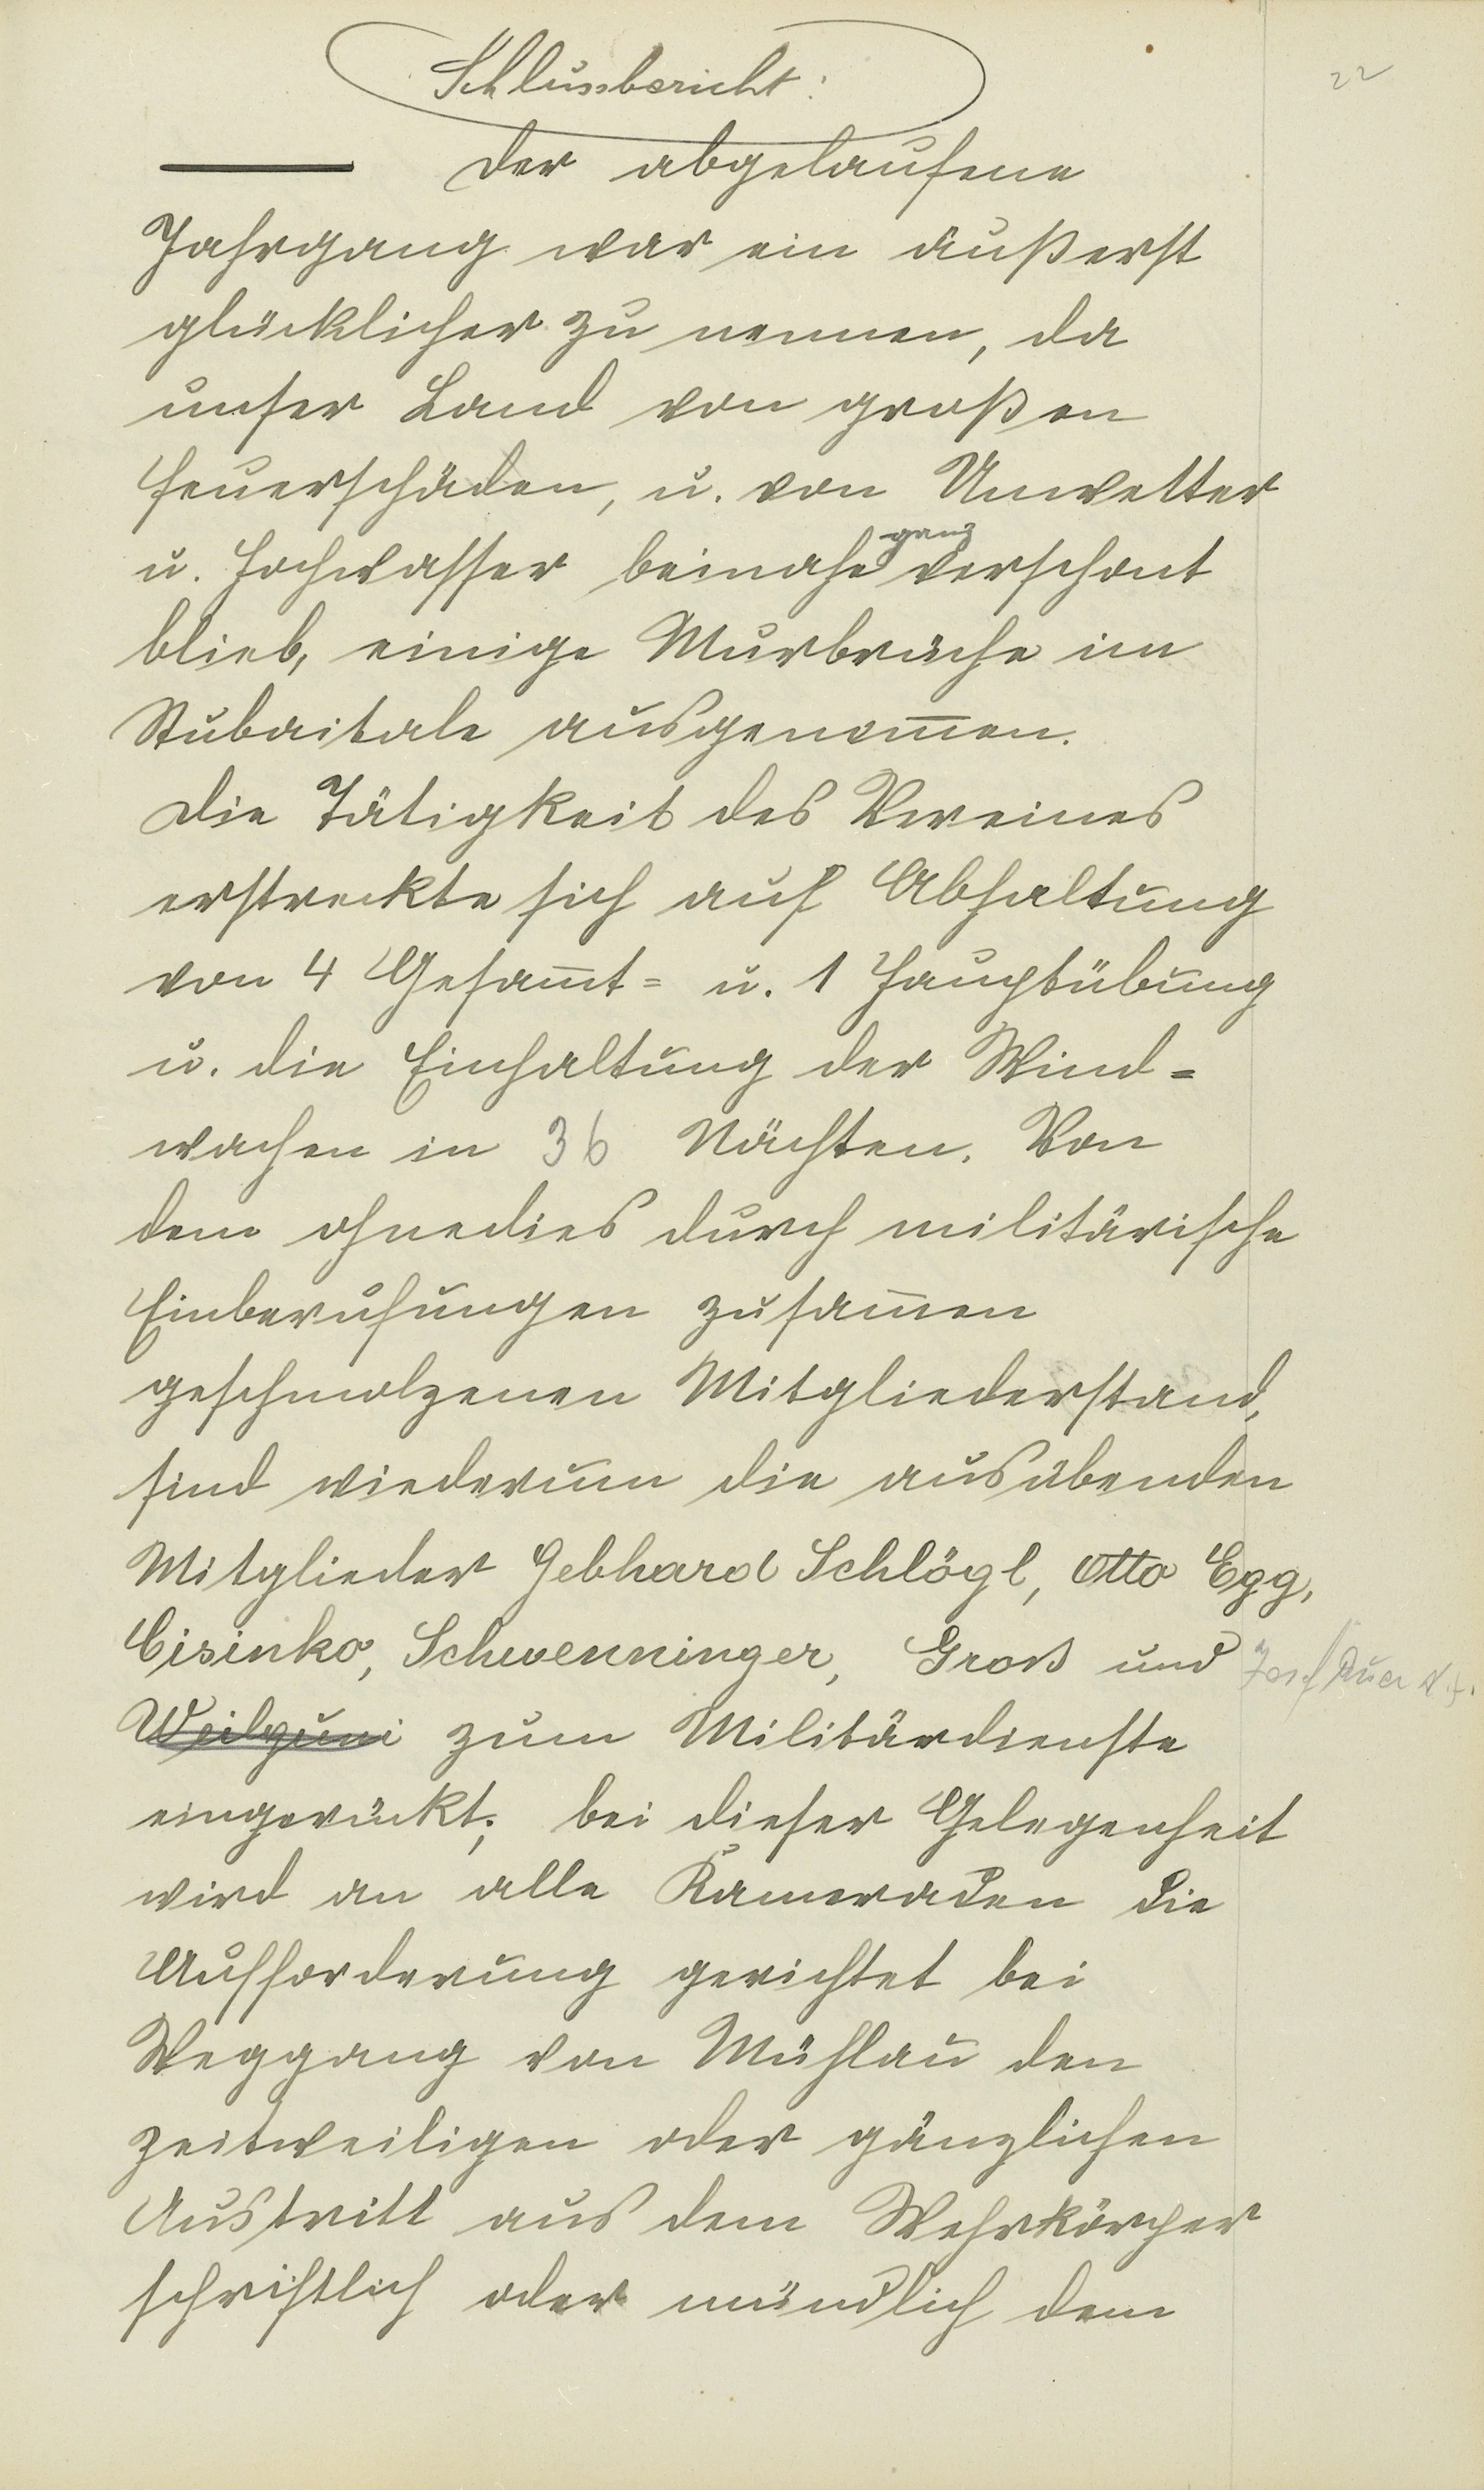 22
Schlussbericht:
Der abgelaufene
Jahrgang war ein äußerst
glücklicher zu nennen, da
unser Land von großen
Feuerschäden, u. von Unwetter
u. Hochwasser beinahe ganz verschont
blieb, einige Murbrüche im
Stubaitale ausgenom̅en.
Die Tätigkeit des Vereines
erstreckte sich auf Abhaltung
von 4 Gesam̅t= u. 1 Hauptübung
u. die Einhaltung der Wind=
wachen in 36 Nächten. Von
dem ohnedies durch militärische
Einberufungen zusam̅en
geschmolzenen Mitgliederstand,
sind wiederum die ausübenden
Mitglieder Gebhard Schlögl, Otto Egg,
Cisinko, Schwenninger, Groß und Josef Auer
Weilguni zum Militärdienste
eingerückt; bei dieser Gelegenheit
wird an alle Kameraden die
Aufforderung gerichtet bei
Weggang von Mühlau den
zeitweiligen oder gänzlichen
Austritt aus dem Wehrkörper
schriftlich oder mündlich dem